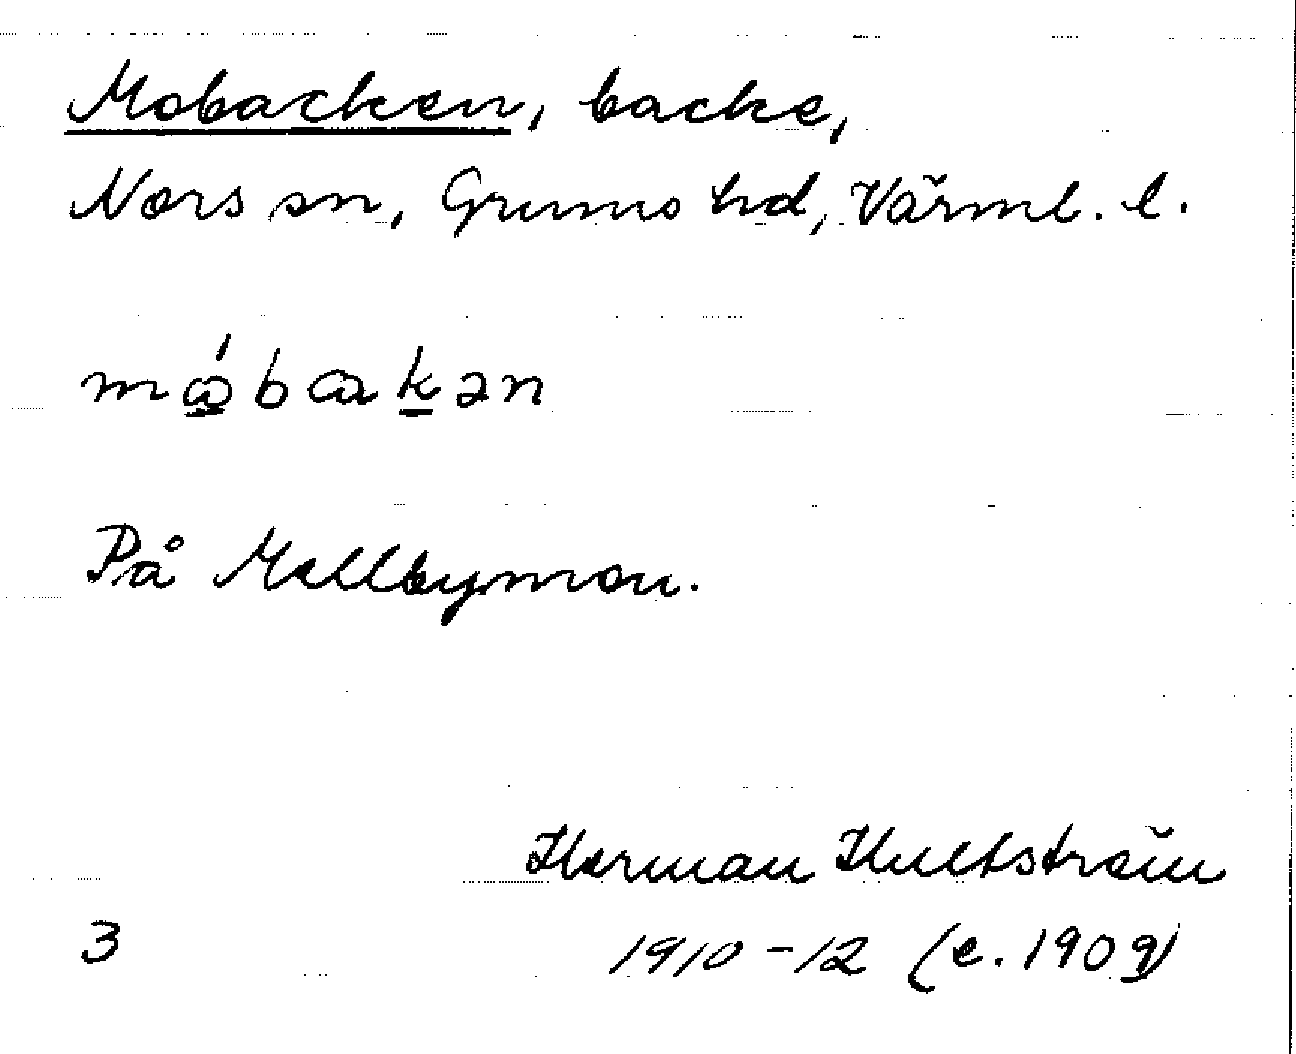 Mobacken, backe,
Nors sn, Grums hd, Värml. l.
mɷ́bakən
På Mellbymon.
Herman Hultström
3 1910-12 (e. 1909)